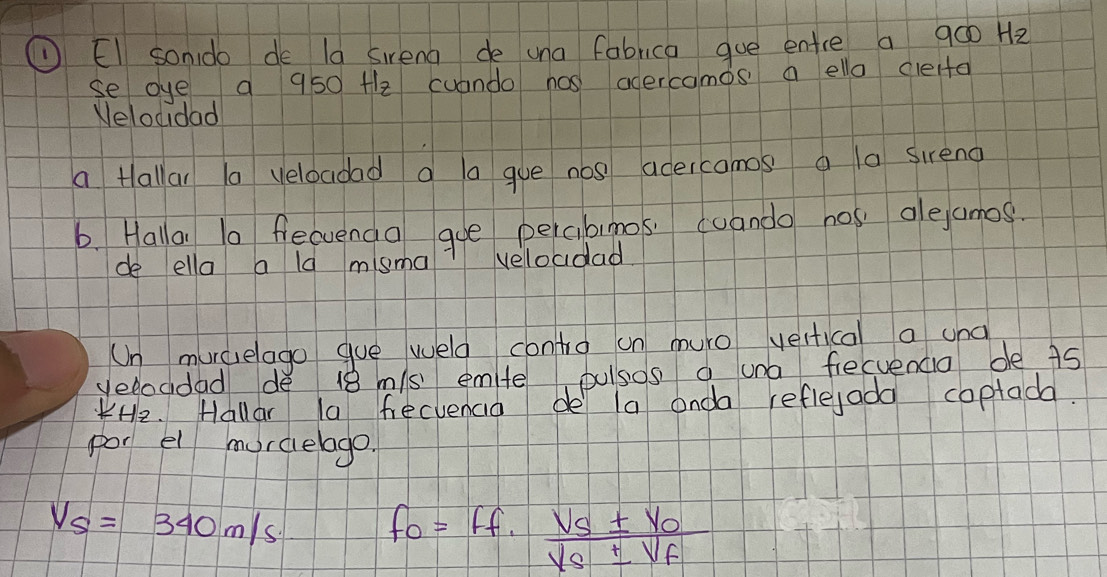 ① El sonido de la sirena de una fabrica que entre a 900 Hz
se oye a 950 Hz cuando nos acercamos a ella cierta
Velocidad
a. Hallar la velocidad a la que nos acercamos a la sirena
b. Hallar la frecuencia que percibimos cuando nos alejamos.
de ella a la misma velocidad
Un murcielago que vuela contra un muro vertical a una
velocidad de 18 m/s emite pulsos a una frecuencia de 75
KHz. Hallar la frecuencia de la onda reflejada captada.
por el murcielago.
Vs = 340 m/s. fo = ff. Vs ± Vo
Vs ± Vf